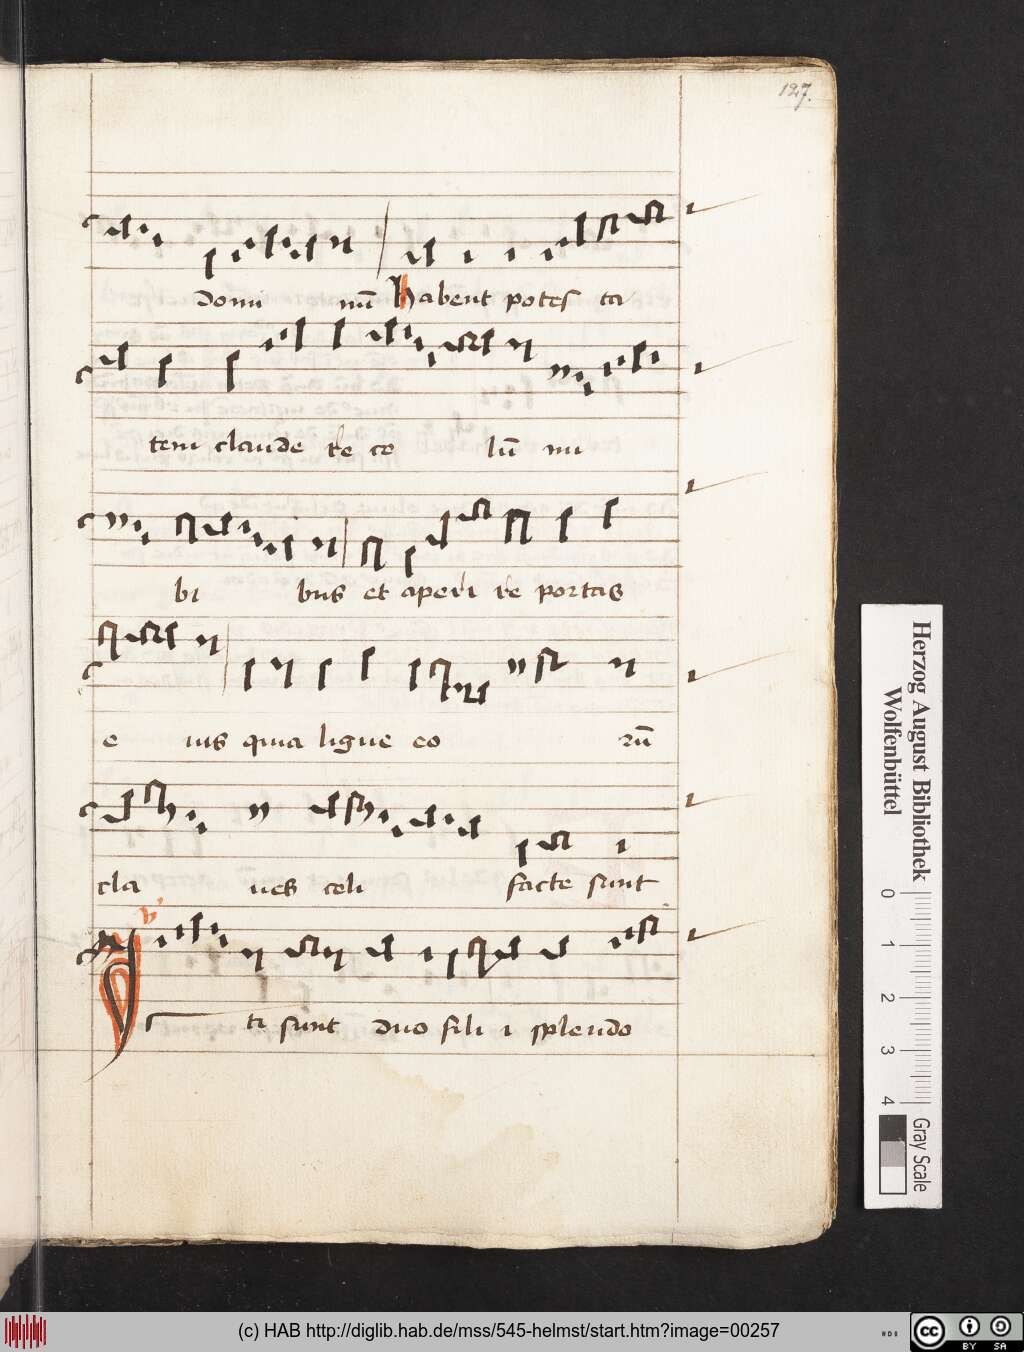 127.
Domi nū habent potes ta
tem claude re ce lū nu
bi bus et aperi re portas
e ius quia ligue eo rū
cla ues celi facte sunt
v
I sti sunt duo fili i splendo
Herzog August Bibliothek
Wolfenbüttel
0 1 2 3 4
Gray Scale
(c) HAB http://diglib.hab.de/mss/545-helmst/start.htm?image=00257
cc BY SA